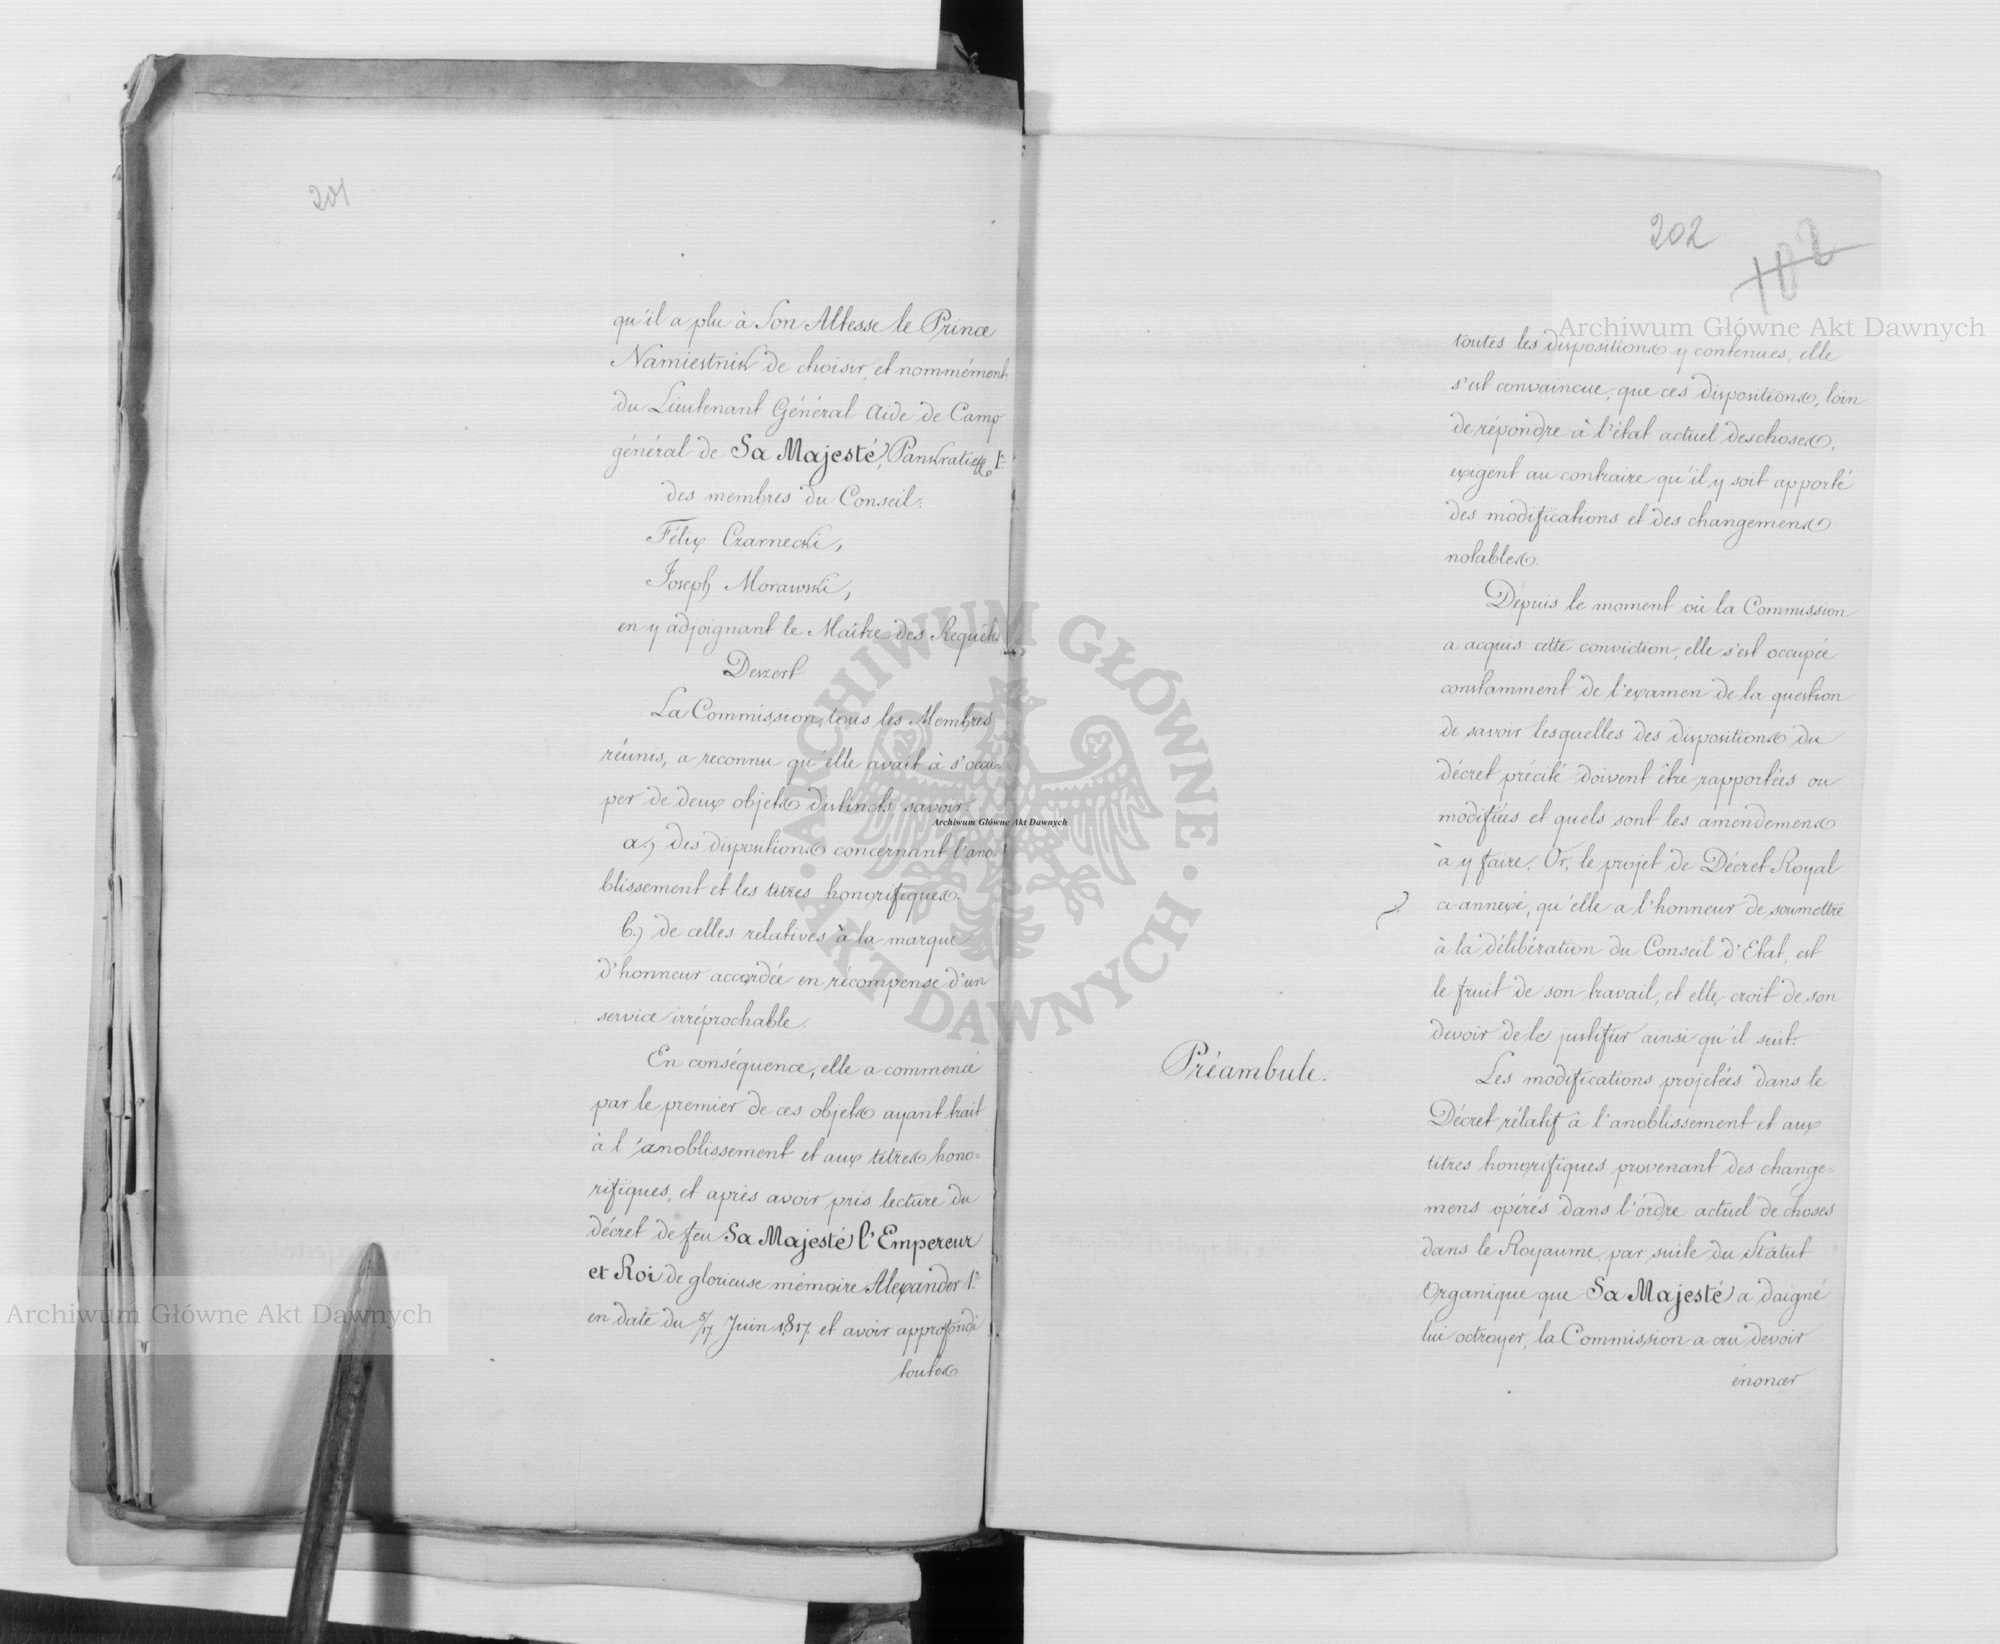 201
qu'il a plu à Son Altesse le Prince
Namiestnik de choisir, et nommément
du Lieutenant Général Aide de Camp
général de Sa Majesté, Pankratieff 1r
des membres du Conseil:
Félix Czarnecki,
Joseph Morawski,
en y adjoignant le Maître des Requêtes
Deszert
La Commission, tous les Membres
réunis, a reconnu qu'elle avait à s'occu-
per de deux objets distincts, savoir:
a.) des dispositions concernant l'ano-
blissement et les titres honorifiques.
b.) de celles relatives à la marque
d'honneur accordée en récompense d'un
service irréprochable.
En conséquence, elle a commencé
par le premier de ces objets ayant trait
à l'anoblissement et aux titres hono-
rifiques, et après avoir pris lecture du
décret de feu Sa Majesté l'Empereur
et Roi de glorieuse mémoire Alexander 1r
en date du 5/17 Juin 1817. et avoir approfondi
toutes
202
102
toutes les dispositions y contenues, elle
s'est convaincue, que ces dispositions, loin
de répondre à l'état actuel des choses,
exigent au contraire qu'il y soit apporté
des modifications et des changemens
notables.
Dépuis le moment où la Commission
a acquis cette conviction, elle s'est occupée
constamment de l'examen de la question
de savoir lesquelles des dispositions du
décret précité doivent être rapportées ou
modifiées et quels sont les amendemens
à y faire. Or, le projet de Décret Royal
ci-annexé, qu'elle a l'honneur de soumettre
à la délibération du Conseil d'Etat, est
le fruit de son travail, et elle croit de son
devoir de le justifier ainsi qu'il suit:
Préambule.
Les modifications projetées dans le
Décret rélatif à l'anoblissement et aux
titres honorifiques provenant des change-
mens opérés dans l'ordre actuel de choses
dans le Royaume, par suite du Statut
Organique que Sa Majesté a daigné
lui octroyer, la Commission a cru devoir
énoncer
Archiwum Główne Akt Dawnych
Archiwum Główne Akt Dawnych
Archiwum Główne Akt Dawnych
ARCHIWUM GŁÓWNE · AKT DAWNYCH ·